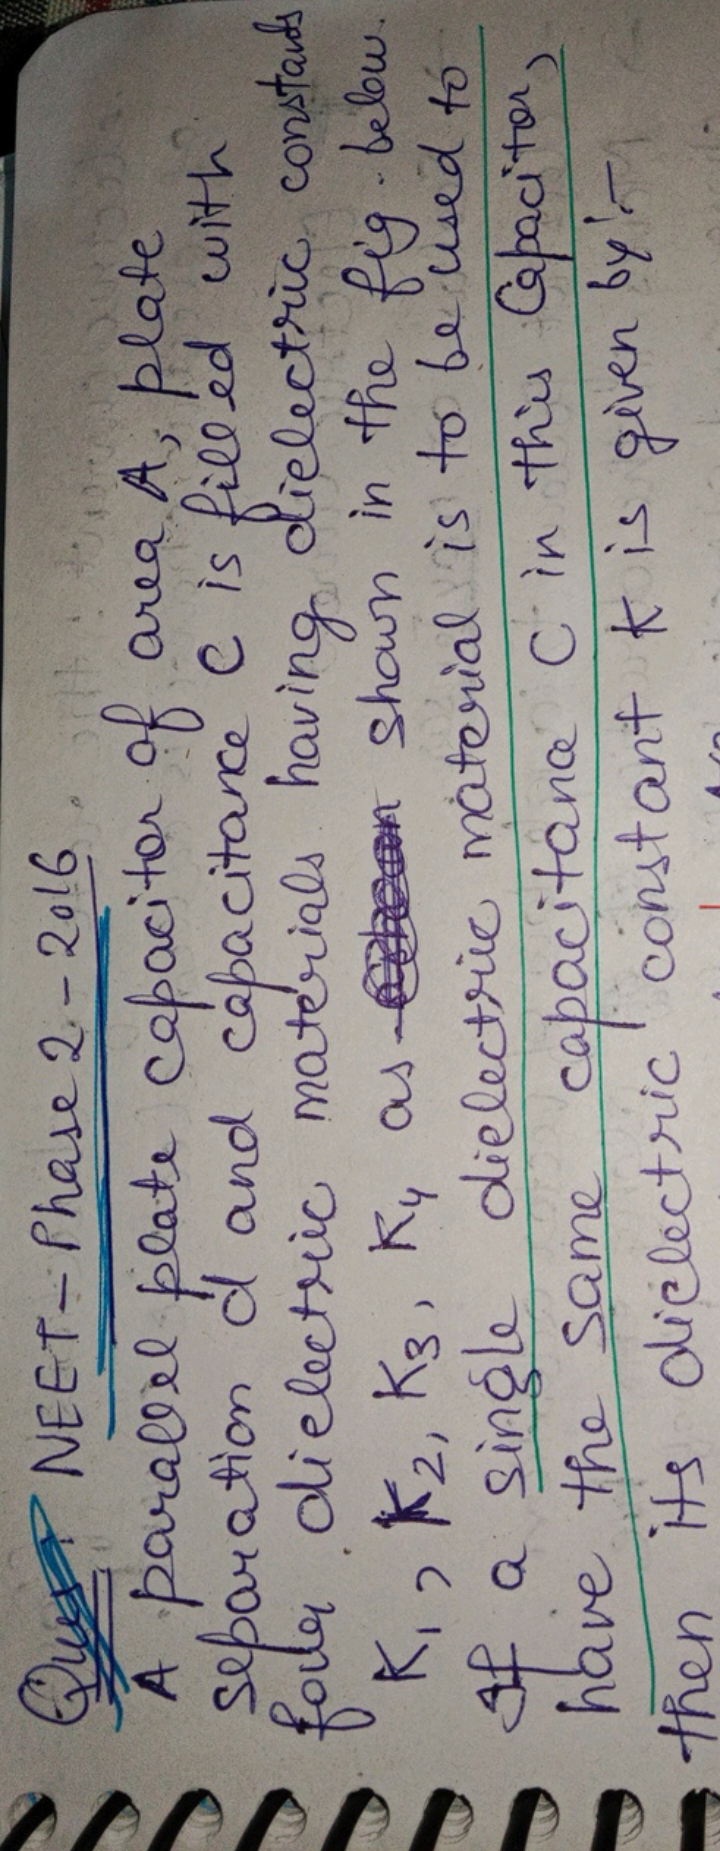 Ques: NEET-Phase 2-2016.
A parallel plate capacitor of area A, plate
separation d and capacitance C is filled with
four dielectric materials having dielectric constants
K1, K2, K3, K4 as shown in the fig. below.
If a single dielectric material is to be used to
have the same capacitance C in this Capacitor,
then its dielectric constant K is given by:-